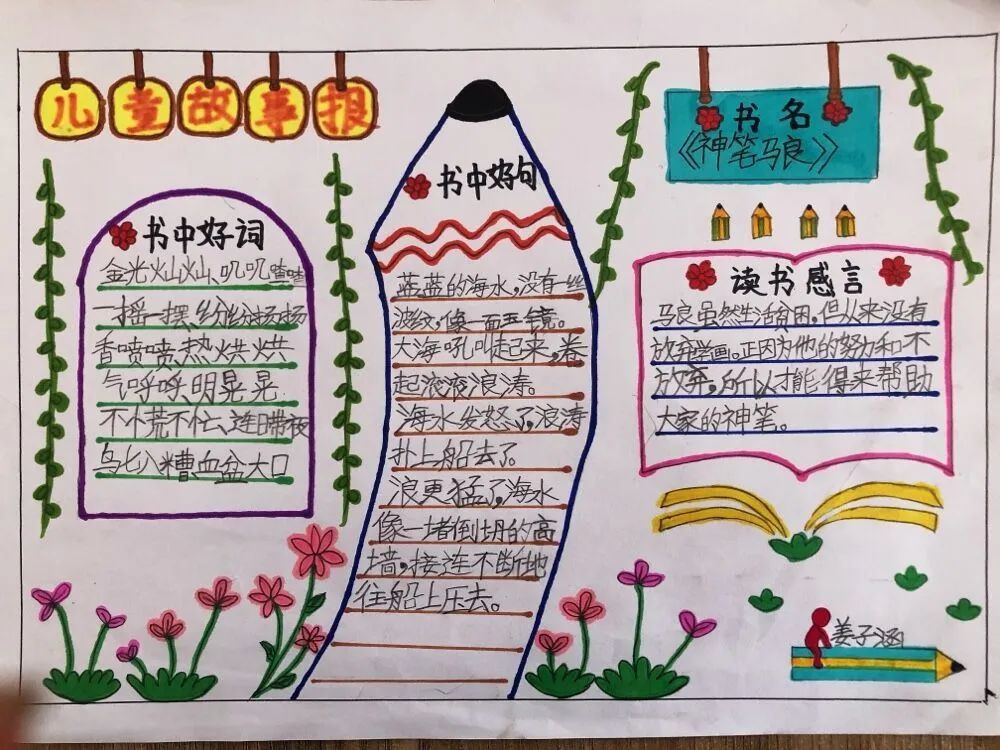 儿童故事报
书中好词
金光灿灿、叽叽喳喳
一摇一摆、纷纷扬扬
香喷喷、热烘烘
气呼呼、明晃晃
不慌不忙、连日带夜
乌七八糟、血盆大口
书中好句
蓝蓝的海水,没有一丝
波纹,像一面玉镜。
大海吼叫起来,卷
起滚滚浪涛。
海水发怒了,浪涛
扑上船去了。
浪更猛了,海水
像一堵倒坍的高
墙,接连不断地
往船上压去。
书名
《神笔马良》
读书感言
马良虽然生活贫困,但从来没有
放弃学画。正因为他的努力和不
放弃,所以才能得来帮助
大家的神笔。
姜子涵